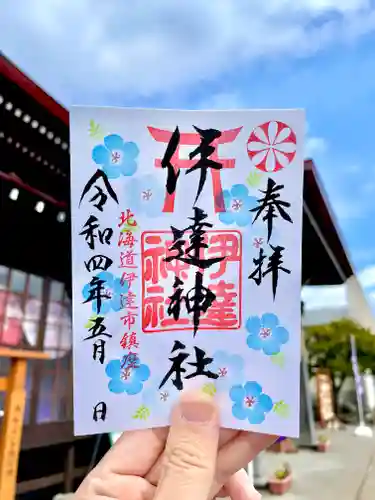 奉拝
伊達神社
伊達
神社
北海道伊達市鎮座
令和四年五月 日